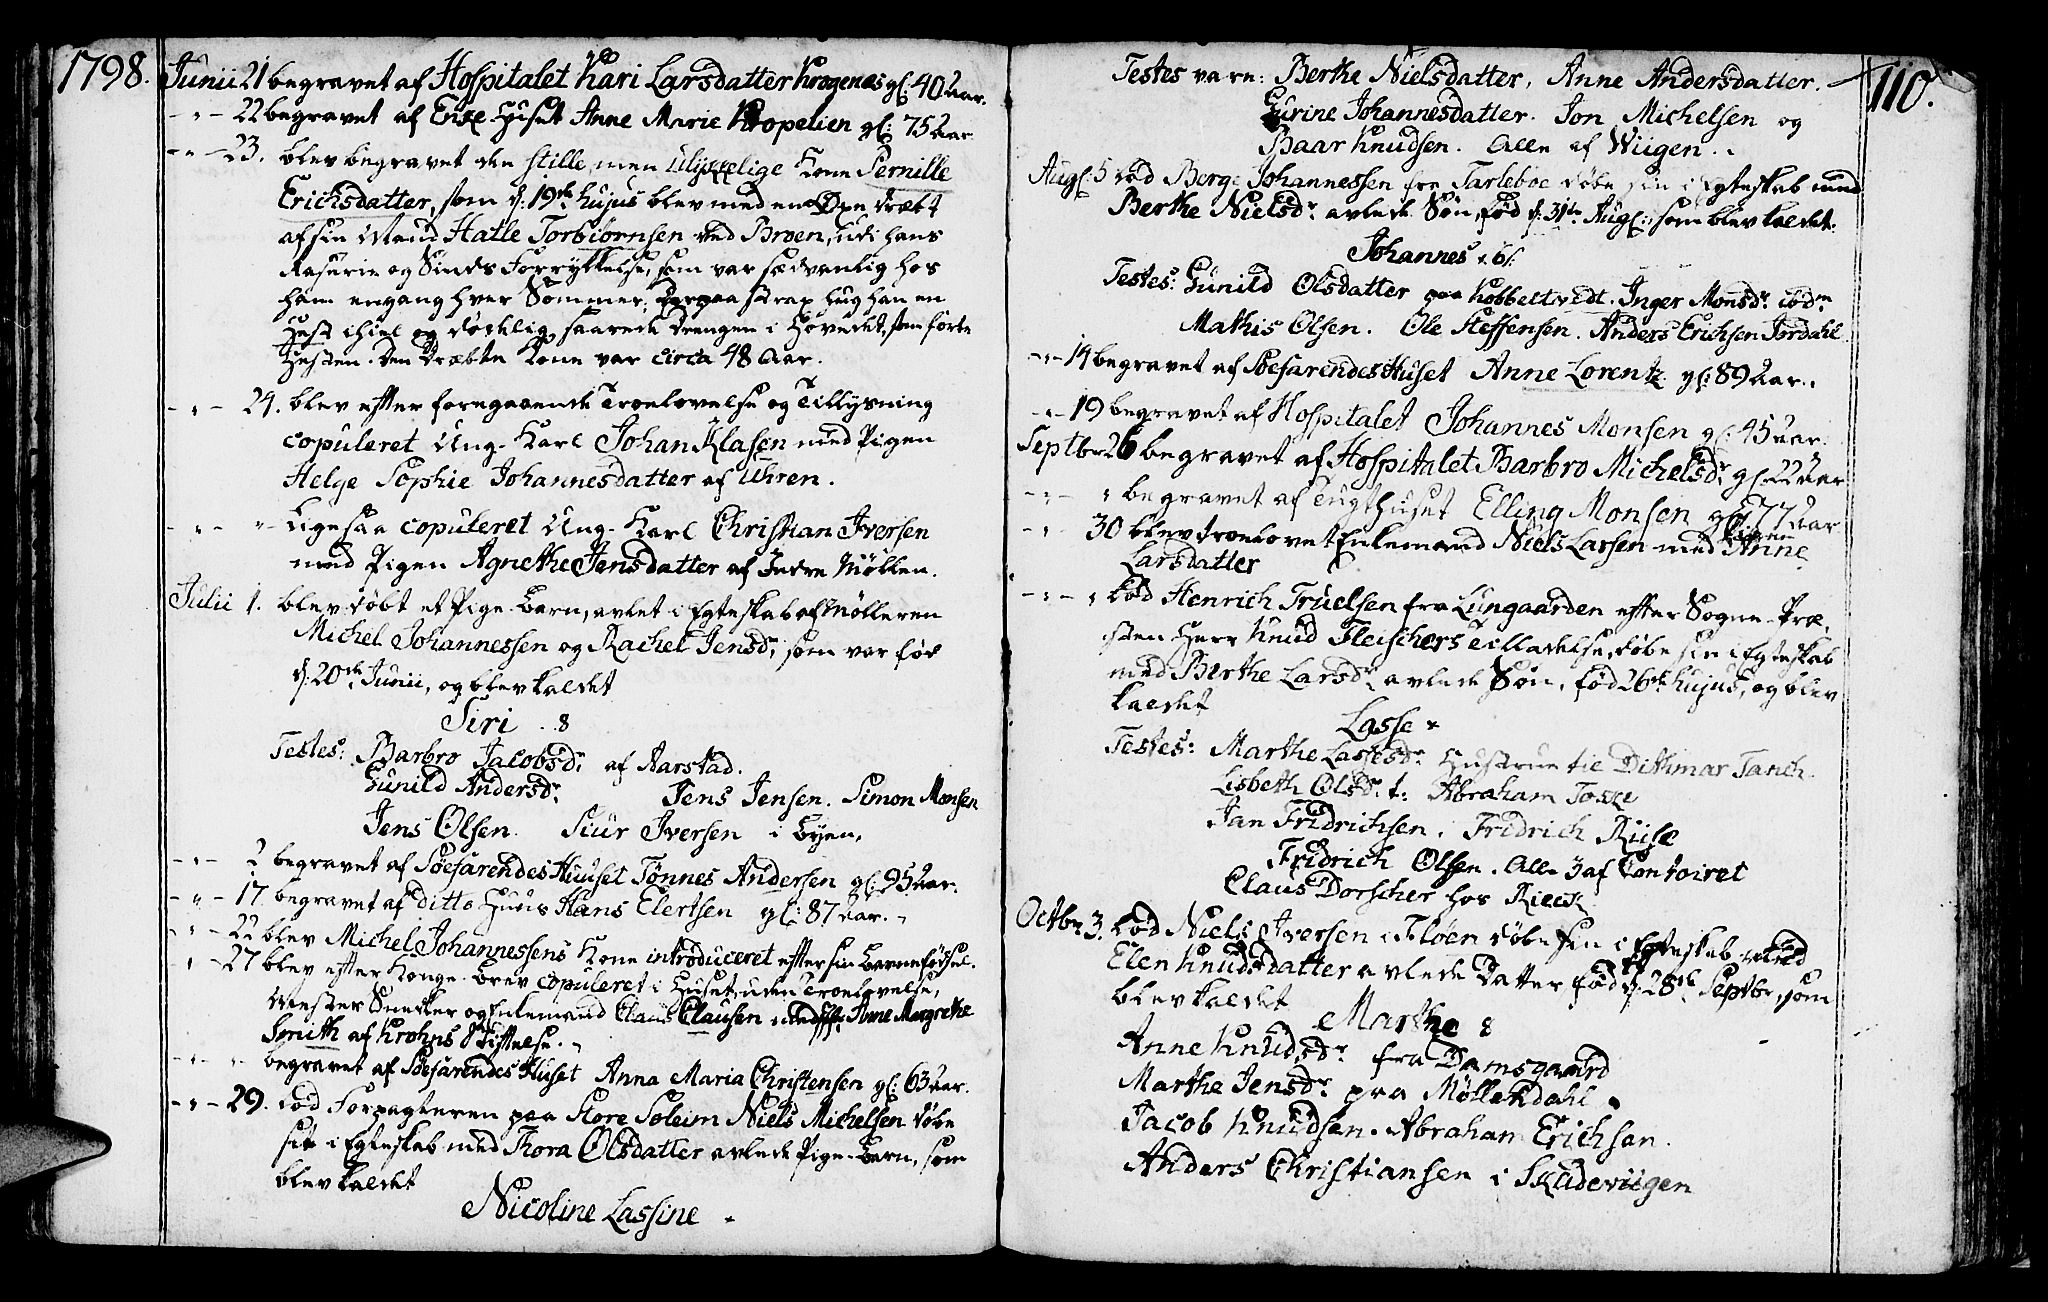 1798.
Junii 21 begravet af Hospitalet Kari Larsdatter Krogenæs gl: 40 Aar.
- " - 22 begravet af Enke-Huset Anne Marie Kropelien gl: 75 Aar
- " - 23. blev begravet den stille, men ulykkelige Kone Pernille
Erichsdatter, som d: 19de hujus blev med en Øxe dræbt
af sin Mand Hatle Torbiørnsen ved Broen, udi hans
Raserie og Sinds Forrykkelse, som var sædvanlig hos
ham engang hver Sommer; derpaa strax hug han en
Hest ihiel og dødelig saarede Drengen i Hovedet, som førte
Hesten. Den Dræbte Kone var circa 48 Aar.
- " - 24. blev efter foregaaende Troelovelse og Tillysning
copuleret Ung-Karl Johan Klasen med Pigen
Helge Sophie Johannesdatter af Uhren.
- " - " - Ligesaa copuleret Ung-Karl Christian Iversen
med Pigen Agnethe Jensdatter af Indre Møllen.
Julii 1. blev døbt et Pige-Barn, avlet i Egteskab af Mølleren
Michel Johannessen og Rachel Jensdr, som var fød
d: 20de Junii, og blev kaldet
Siri
Testes: Barbro Jacobsdr af Aarstad.
Gunild Andersdr Jens Jensen. Simon Monsen
Jens Olsen. Siur Iversen i Byen,
- " - 2 begravet af Søefarendes Huuset Tønnes Andersen gl: 95 Aar.
- " - 17. begravet af ditto Huus Hans Elertsen gl: 87 Aar.
- " - 22 blev Michel Johannessens Kone introduceret efter sin Barnefødsel.
" - 27 blev efter Konge-brev copuleret i Huset, uden Troelovelse,
Mester Snedker og Enkemand Claus Clausen med Anne Margrethe
Smith af Krohns Stiftelse.
- " - " begravet af Søefarendes Huset Anna Maria Christensen gl: 63 Aar.
- " - 29. lod Forpagteren paa Store Soleim Niels Michelsen døbe
sit i Egteskab med Thora Olsdatter avlede Pige-Barn, som
blev kaldet
Nicoline Lassine
110.
Testes vare: Berthe Nielsdatter, Anne Andersdatter.
Gurine Johannesdatter. Jon Michelsen og
Baar Knudsen. Alle af Wiigen.
Augl: 5 lod Berge Johannessen fra Tarleboe døbe sin i Egteskab med
Berthe Nielsdr avlede Søn, fød d: 31te Augl:, som blev kaldet.
Johannes
Testes: Gunild Olsdatter paa Kobbeltvedt. Inger Monsdr ibdm
Mathis Olsen. Ole Steffensen. Anders Erichsen Jordahl
- " - 14 begravet af Søefarendes Huset Anne Lorentz gl: 89 Aar.
- " - 19 begravet af Hospitalet Johannes Monsen gl: 45 Aar.
Septbr 26 begravet af Hospitalet Barbro Michelsdr gl: 22 Aar
- " - " begravet af Tugthuset Elling Monsen gl: 77 Aar
- " 30 blev troelovet Enkemand Niels Larsen med Pigen Anne
Larsdatter
- " - " lod Henrich Truelsen fra Lungaarden efter Sogne-Præ,
sten Herr Knud Fleischers Tilladelse, døbe sin i Egteskab
med Berthe Larsdr avlede Søn, fød 26de hujus, og blev
kaldet
Lasse
Testes: Marthe Lassesdr Hustrue til Dithmar Tanch.
Lisbeth Olsdr t: Abraham Toske
Jan Fridrichsen. Fridrich Riise
Fridrich Olsen. Alle 3 af Contoiret
Claus Dorscher hos Rieck
Octbr 3. lod Niels Iversen i Fløen døbe sin i Egteskab med
Elen Knudsdatter avlede Datter, fød d: 28de Septbr, som
blev kaldet
Marthe
Anne Knudsdr fra Damsgaard
Marthe Jensdr paa Møllendahl
Jacob Knudsen. Abraham Erichsen.
Anders Christiansen i Skudeviigen